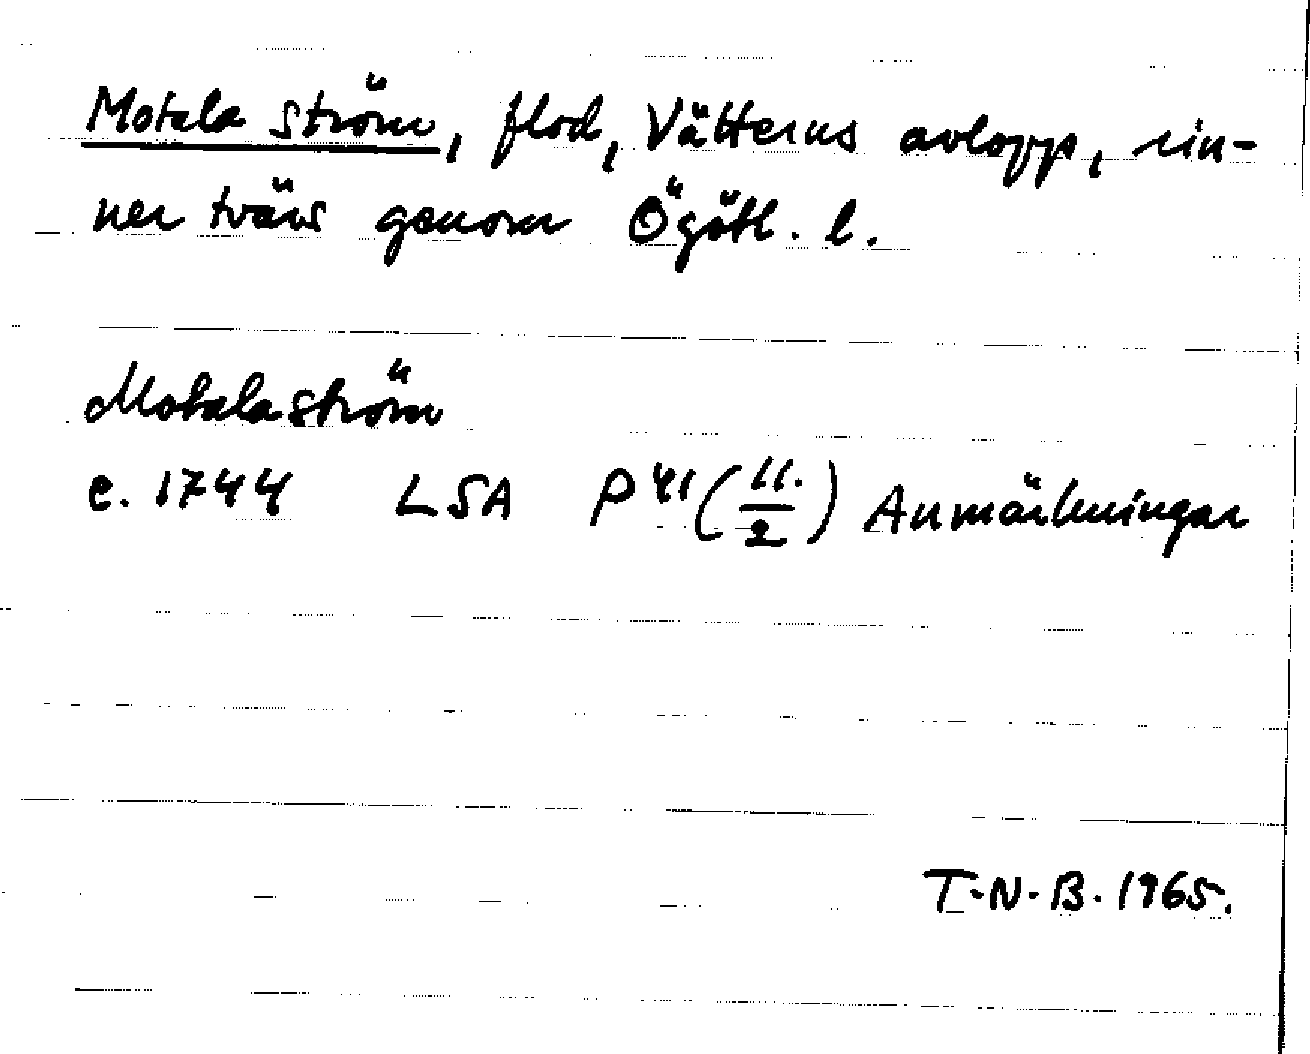 Motala ström, flod, Vätterns avlopp, rin-
ner tvärs genom Ögötl. l.
Motalaström
c. 1744 LSA P 41 (11./2) Anmärkningar
T.N.B. 1965.